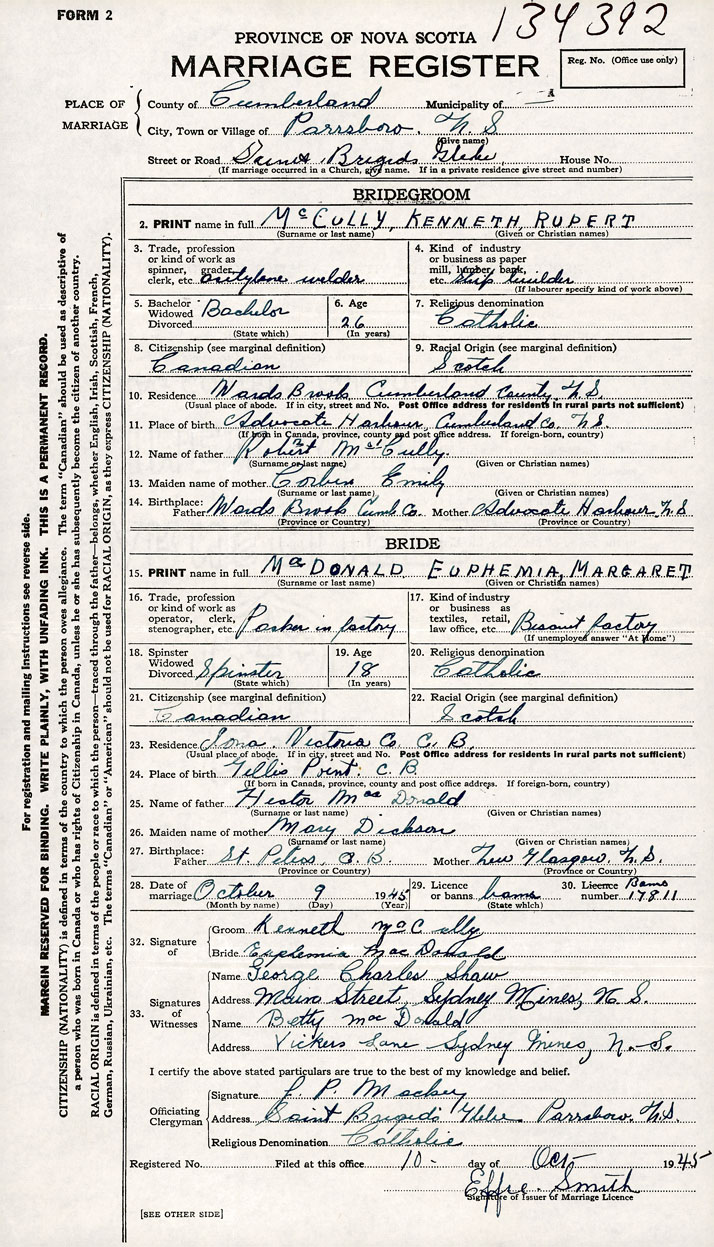 FORM 2
134392
PROVINCE OF NOVA SCOTIA
MARRIAGE REGISTER
Reg. No. (Office use only)
PLACE OF MARRIAGE
County of Cumberland Municipality of
City, Town or Village of Parrsboro. N. S
(Give name)
Street or Road Saint Brigids Glebe, House No.
(If marriage occurred in a Church, give name. If in a private residence give street and number)
BRIDEGROOM
2. PRINT name in full McCULLY, KENNETH, RUPERT
(Surname or last name) (Given or Christian names)
3. Trade, profession or kind of work as spinner, grader, clerk, etc. acetylene welder
4. Kind of industry or business as paper mill, lumber, bank, etc. Ship builder
(If labourer specify kind of work above)
5. Bachelor Widowed Divorced Bachelor
(State which)
6. Age 26
(In years)
7. Religious denomination Catholic
8. Citizenship (see marginal definition) Canadian
9. Racial Origin (see marginal definition) Scotch
10. Residence Wards Brook Cumberland County, N.S.
(Usual place of abode. If in city, street and No. Post Office address for residents in rural parts not sufficient)
11. Place of birth Advocate Harbour, Cumberland Co. N.S.
(If born in Canada, province, county and post office address. If foreign-born, country)
12. Name of father Robert McCully.
(Surname or last name) (Given or Christian names)
13. Maiden name of mother Corbin Emily
(Surname or last name) (Given or Christian names)
14. Birthplace: Father Wards Brook Cumb Co. Mother Advocate Harbour, N.S
(Province or Country) (Province or Country)
BRIDE
15. PRINT name in full MacDONALD EUPHEMIA, MARGARET
(Surname or last name) (Given or Christian names)
16. Trade, profession or kind of work as operator, clerk, stenographer, etc. Packer in factory
17. Kind of industry or business as textiles, retail, law office, etc. Biscuit factory
(If unemployed answer "At Home")
18. Spinster Widowed Divorced Spinster
(State which)
19. Age 18
(In years)
20. Religious denomination Catholic
21. Citizenship (see marginal definition) Canadian
22. Racial Origin (see marginal definition) Scotch
23. Residence Iona. Victoria Co. C. B.
(Usual place of abode. If in city, street and No. Post Office address for residents in rural parts not sufficient)
24. Place of birth Gillis Point: C. B.
(If born in Canada, province, county and post office address. If foreign-born, country)
25. Name of father Hector MacDonald
(Surname or last name) (Given or Christian names)
26. Maiden name of mother Mary Dickson
(Surname or last name) (Given or Christian names)
27. Birthplace: Father St. Peters, C. B. Mother New Glasgow, N. S.
(Province or Country) (Province or Country)
28. Date of marriage October 9 1945
(Month by name) (Day) (Year)
29. Licence or banns banns
(State which)
30. Licence Banns number 17811
32. Signature of
Groom Kenneth McCully
Bride Euphemia MacDonald
33. Signatures of Witnesses
Name George Charles Shaw
Address Main Street, Sydney Mines, N. S.
Name Betty MacDonald
Address Vickers Lane Sydney Mines, N.-S.
I certify the above stated particulars are true to the best of my knowledge and belief.
Officiating Clergyman
Signature J. P. Mackey
Address Saint Brigid's Glebe Parrsboro, N.S.
Religious Denomination Catholic
Registered No. Filed at this office 10- day of Oct- 1945
Effie Smith
Signature of Issuer of Marriage Licence
[SEE OTHER SIDE]
For registration and mailing instructions see reverse side.
MARGIN RESERVED FOR BINDING. WRITE PLAINLY, WITH UNFADING INK. THIS IS A PERMANENT RECORD.
CITIZENSHIP (NATIONALITY) is defined in terms of the country to which the person owes allegiance. The term "Canadian" should be used as descriptive of
a person who was born in Canada or who has rights of Citizenship in Canada, unless he or she has subsequently become the citizen of another country.
RACIAL ORIGIN is defined in terms of the people or race to which the person—traced through the father—belongs, whether English, Irish, Scottish, French,
German, Russian, Ukrainian, etc. The terms "Canadian" or "American" should not be used for RACIAL ORIGIN, as they express CITIZENSHIP (NATIONALITY).